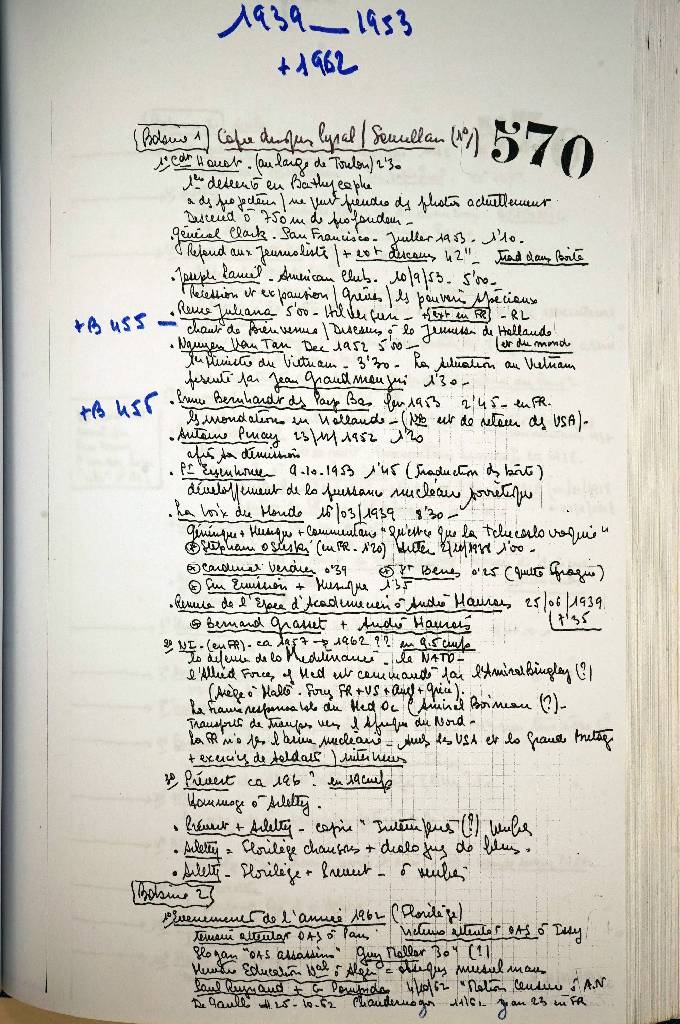 1939 — 1953
+ 1962
Bobine 1 Copie disques (1°/) 570
1° Cdt Houot. (au large de Toulon) 2'30
1ère descente en Bathyscaphe
a des projecteurs / ne peut prendre des photos actuellement
Descend à 750 m de profondeur -
. Général Clark - San Francisco - Juillet 1953 - 1'10 -
Répond aux journalistes / + ext discours 42" - trad dans Boite
. Joseph Laniel - American Club. 10/9/53. 5'00 -
Récession et expansion / Grèves / les pouvoirs spéciaux
+B 455 — . Reine Juliana 5'00 - Hilversum - + ext en FR - RL
chant de Bienvenue / Discours à la Jeunesse de Hollande
et du monde
. Nguyen Van Tan Dec 1952 5'00 -
1er Ministre du Vietnam - 3'30 - La situation au Vietnam
présenté par Jean Grandmougin 1'30 -
+B 455 . Prince Bernhardt des Pays Bas fev 1953 2'45 - en FR.
Les inondations en Hollande - ( est de retour des USA) -
. Antoine Pinay 23/12/1952 1'20
après sa démission
. Pt Eisenhower 9.10.1953 1'45 (traduction ds boite)
développement de la puissance nucléaire soviétique
. La Voix du Monde 15/03/1939 8'30 -
Générique + Musique + Commentaire "Qu'est ce que la Tchecoslovaquie"
+ Stephan Osusky (en FR - 1'20) Hitler 1938 1'00 -
+ Cardinal Verdier 0'39 + Pt Benes 0'25 (quitte )
+ fin Emission + Musique 1'35
. Remise de l'Epée d'Académicien à André Maurois 25/06/1939
+ Bernard Grasset + André Maurois 7'35
2°/ NI - (en FR) - ca 1957 → 1962 ?? en 9.5 cm/s
la défense de la Méditerranée - la NATO -
l'Allied Forces of Med est commandé par l'Amiral Bingley (?)
(siège à Malte - Forces FR + US + Angl + Grèce).
La France responsable du Med Oc (Amiral Boineau (?) -
Transports de troupes vers l'Afrique du Nord -
La FR n'a pas l'arme nucléaire - mais les USA et la Grande Bretagne
+ exercices de soldats / interviews
3°/ Prévert ca 196 ? en 19 cm/s
Hommage à Arletty.
. Prévert + Arletty - copie " Intempéries (?)
. Arletty = Florilège chansons + dialogues de films.
. Arletty - Florilège + Prévert -
Bobine 2
1° Evenements de l'année 1962 (Florilège)
témoin attentat OAS à Paris Victime attentat OAS à Issy
Slogan "OAS assassins" Guy Mollet 30" (?)
Ministre Education Nale à Alger = obsèques musulmans
Paul Reynaud + G Pompidou 4/10/62 "Motion Censure à A.N
De Gaulle 25-10-62 Chandernagor 11/62 Jean 23 en FR